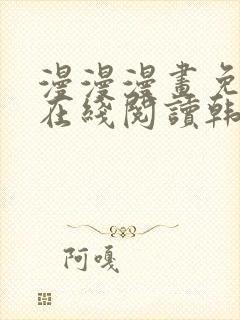 漫漫漫畫免
在綫閱讀韩
阿嘎